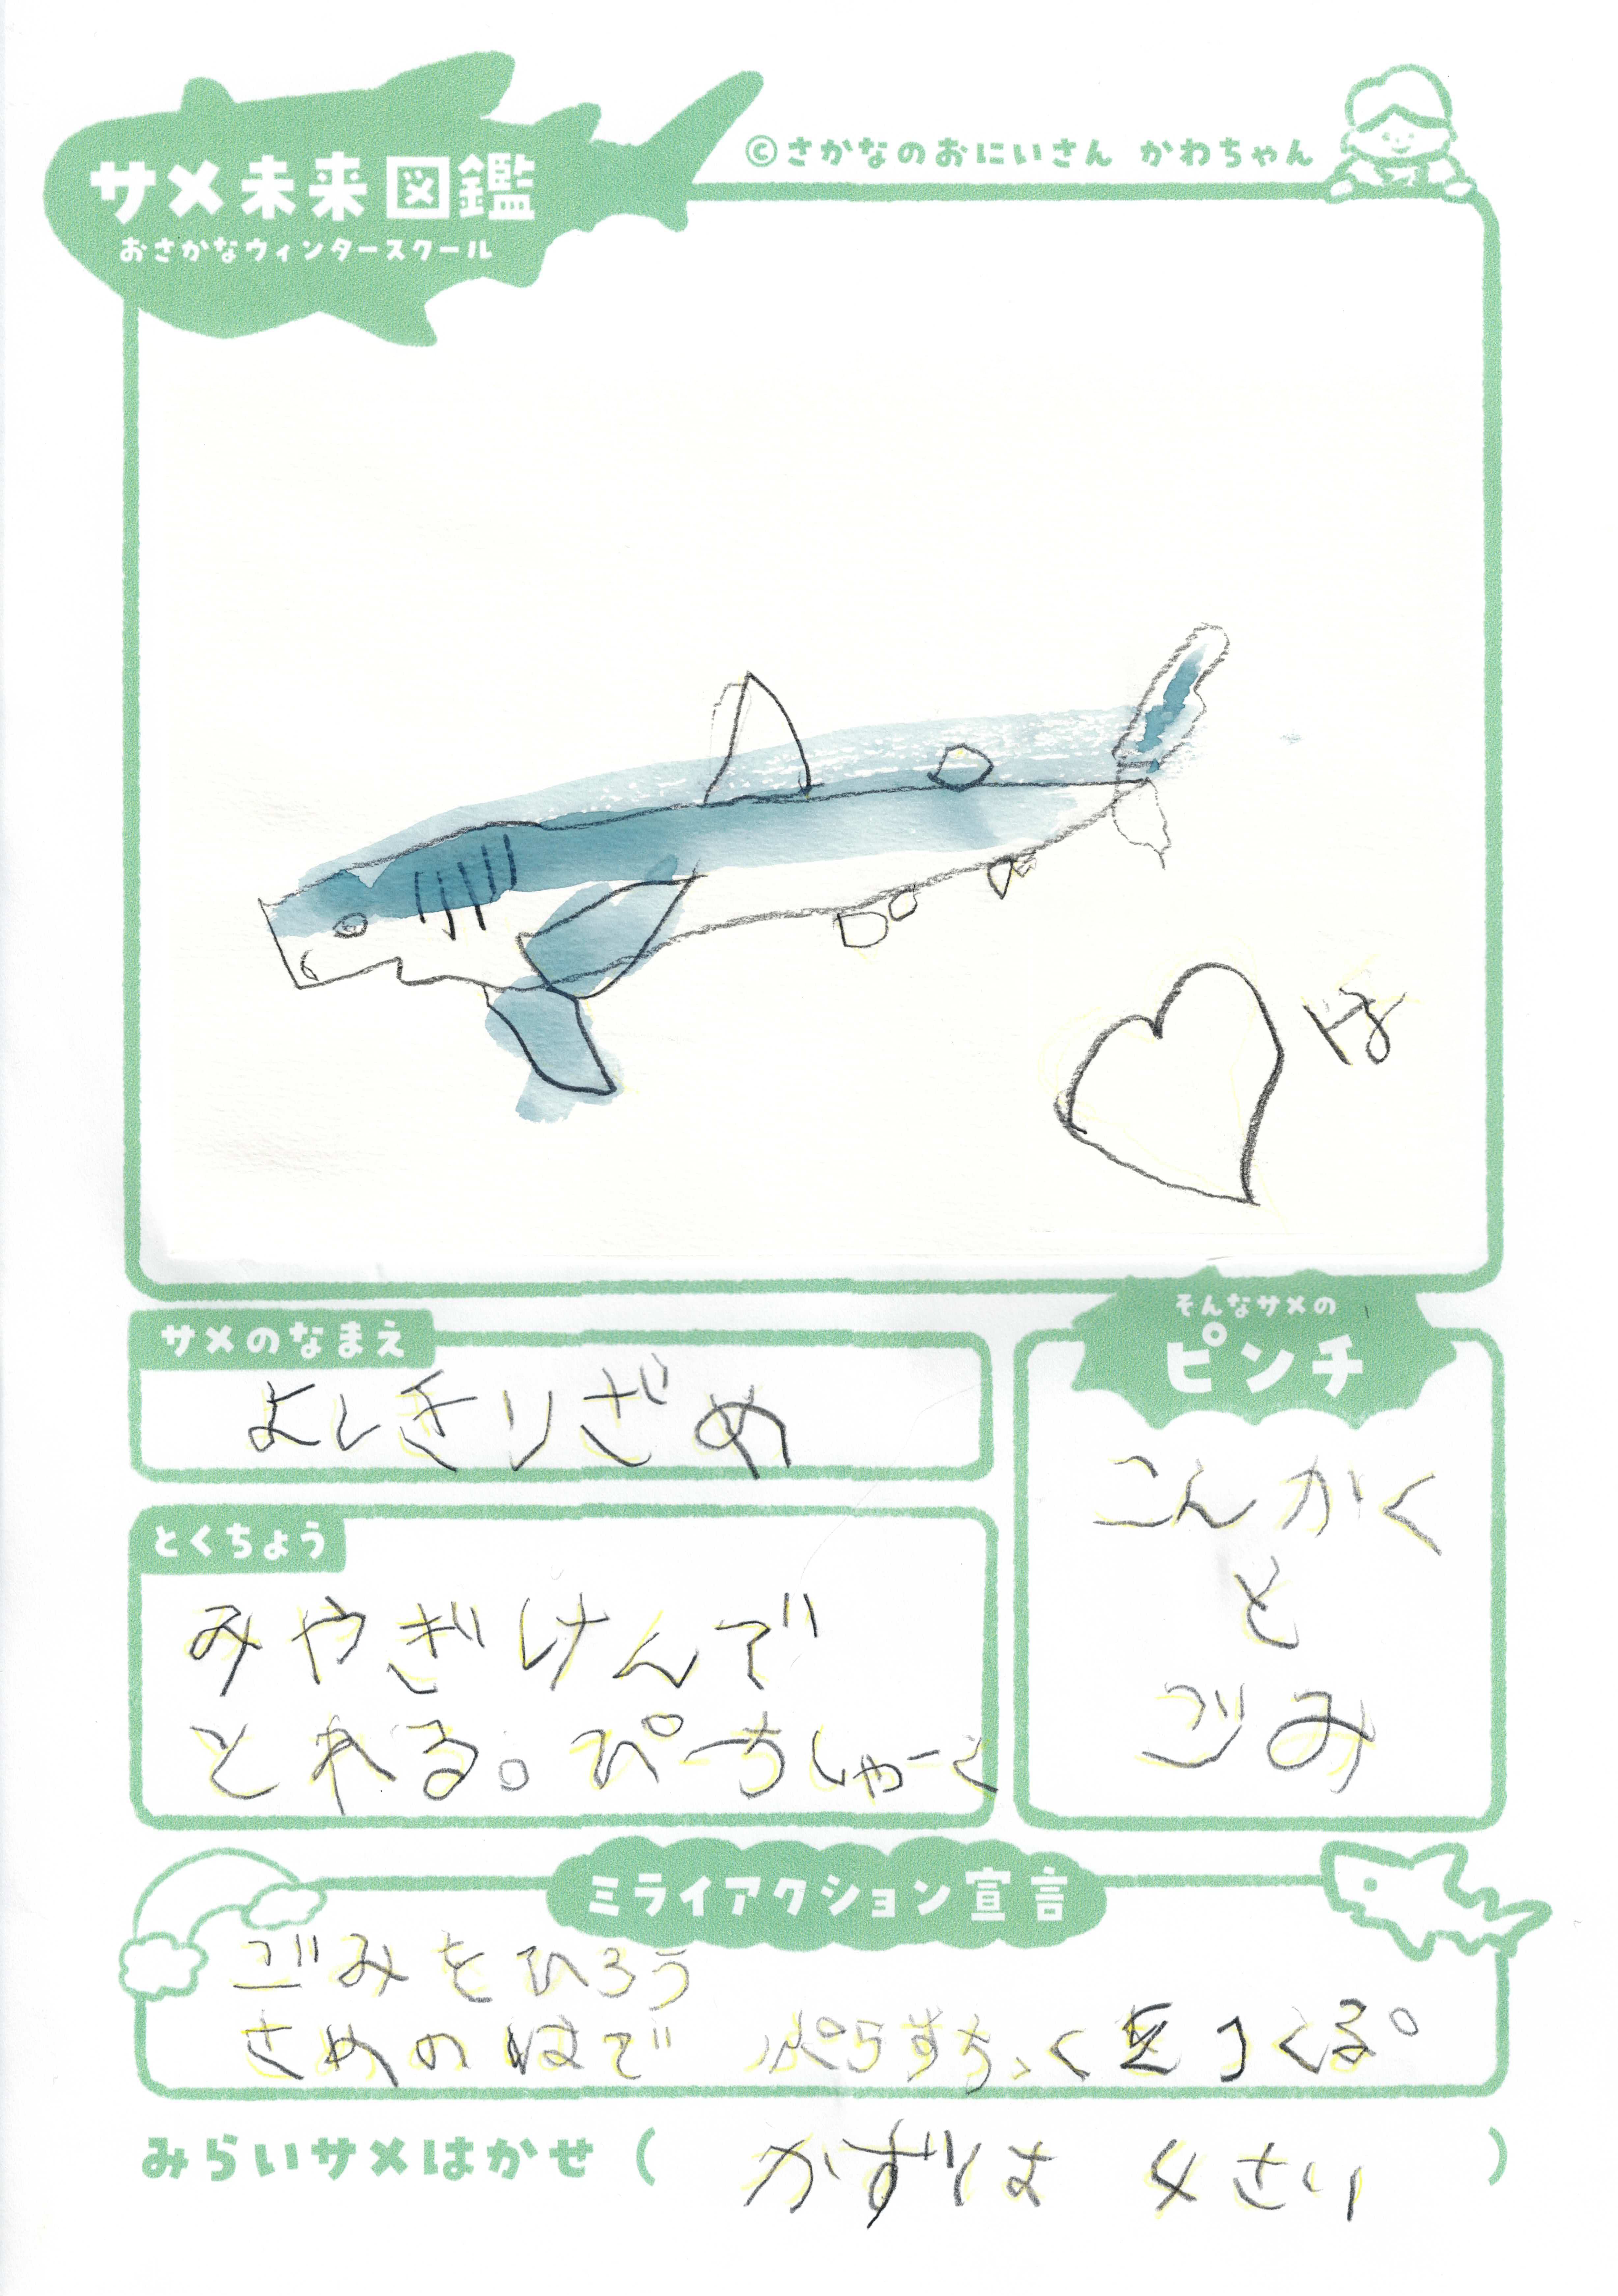 サメ未来図鑑
おさかなウィンタースクール
©さかなのおにいさん かわちゃん
は
サメのなまえ
よしきりざめ
とくちょう
みやぎけんで
とれる。ぴーちしゃーく
そんなサメの
ピンチ
こんかく
と
ごみ
ミライアクション宣言
ごみをひろう
さめのはで ぷらすちっくをつくる。
みらいサメはかせ ( かずは 4さい )